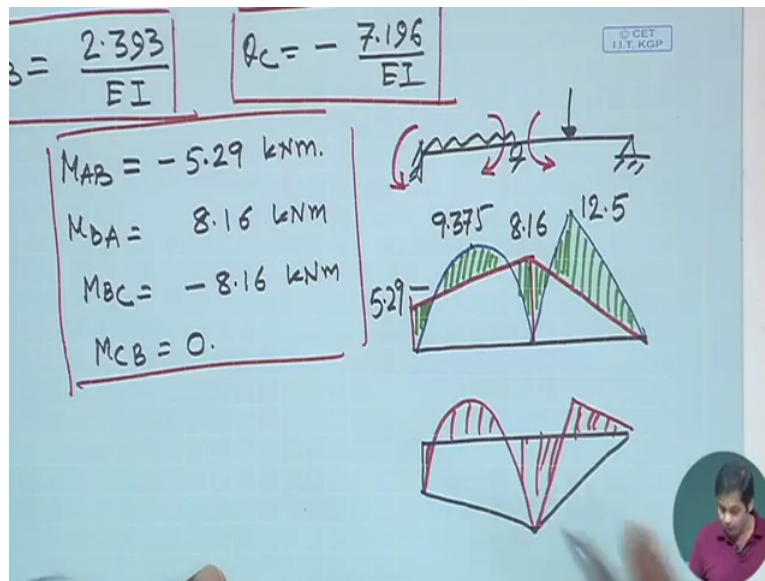 B = 2.393 / EI
θC = - 7.196 / EI
© CET
I.I.T. KGP
MAB = - 5.29 kNm.
MBA = 8.16 kNm
MBC = - 8.16 kNm
MCB = 0.
9.375 8.16 12.5
5.29